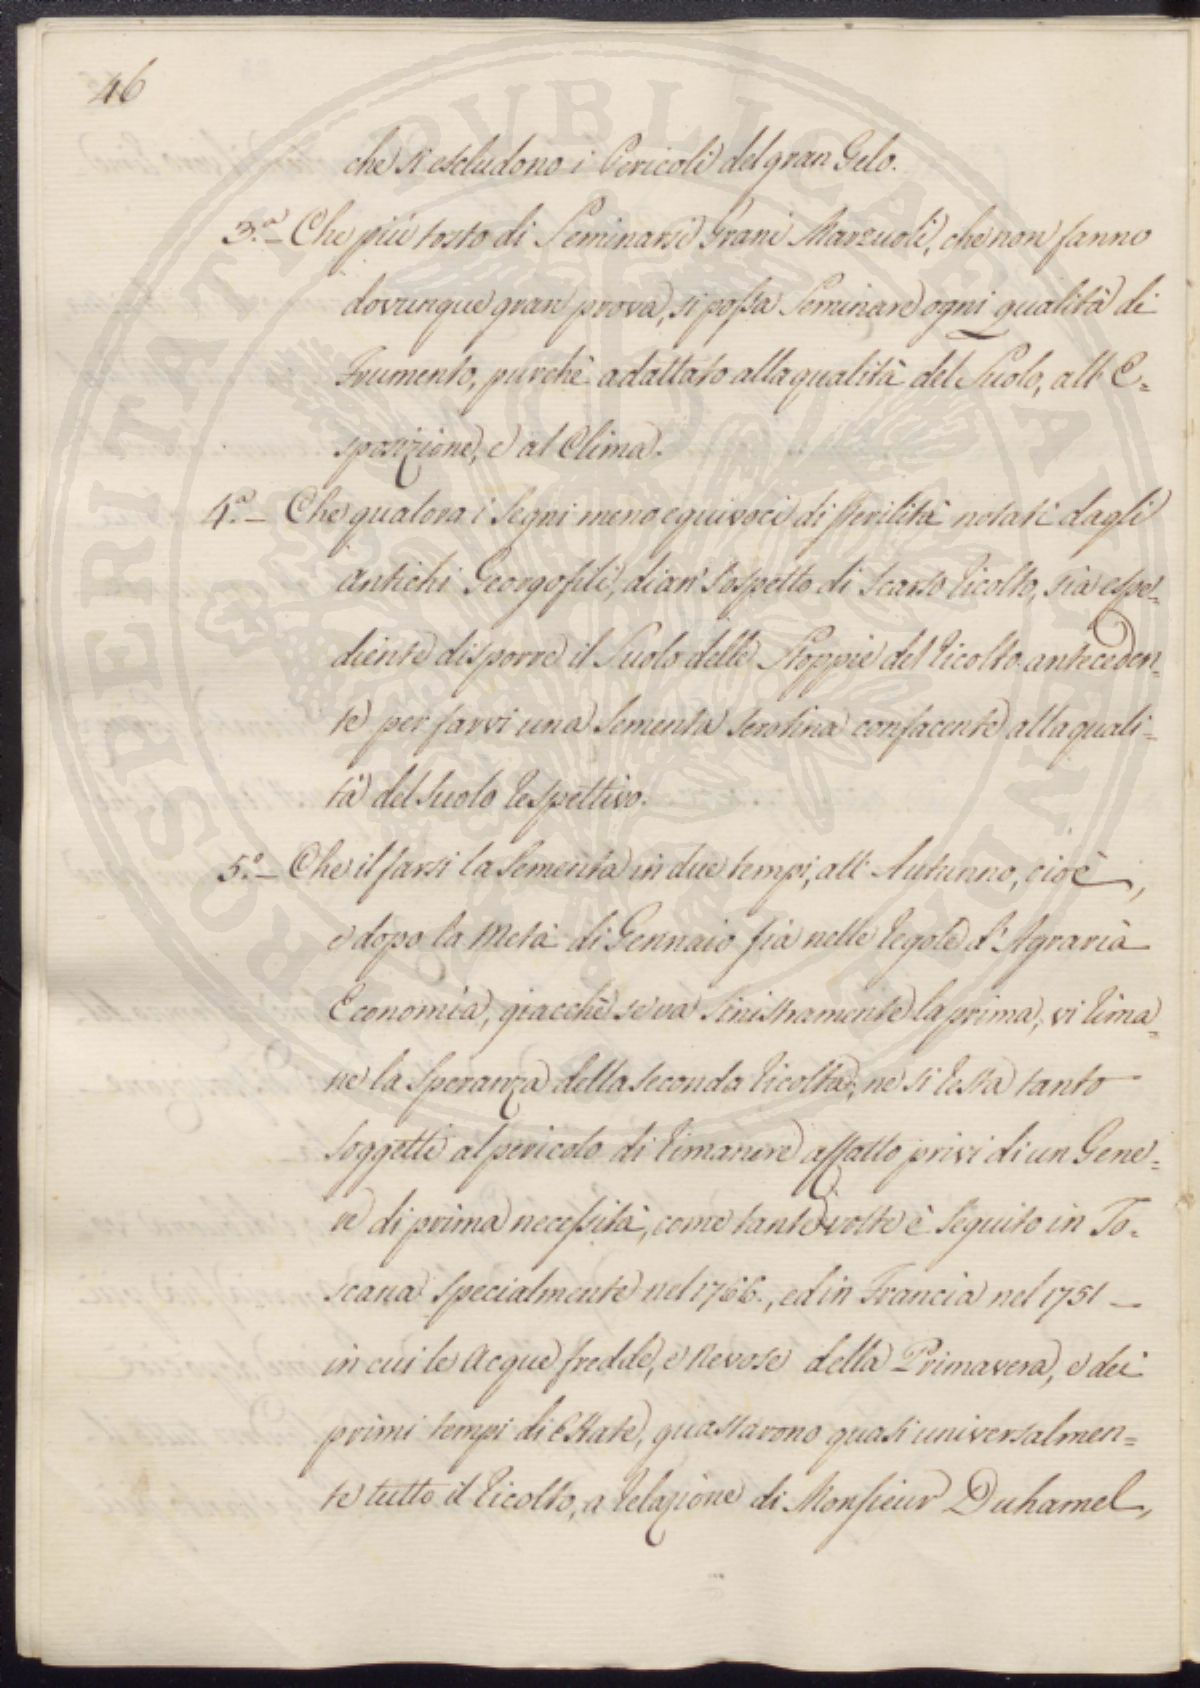 46
che si escludono i Pericoli del gran Gelo.
3.ª — Che più tosto di Seminarsi Grani Marzuoli, che non fanno
dovunque gran prova, si possa Seminare ogni qualità di
Frumento, purchè adattato alla qualità del Suolo, all'E=
sposizione, e al Clima.
4.ª — Che qualora i Segni meno equivoci di sterilità notati dagli
antichi Georgofili, dian sospetto di scarso Ricolto, sia espe=
diente disporre il Suolo delle Stoppie del Ricolto anteceden=
te per farvi una Sementa serotina confacente alla quali=
tà del Suolo respettivo.
5.º — Che il farsi la Sementa in due tempi, all'Autunno, cioè,
e dopo la Metà di Gennaio sia nelle regole d'Agraria
Economia, giacchè se va Sinistramente la prima, vi rima=
ne la Speranza della seconda Ricolta, ne si resta tanto
soggetti al pericolo di rimanere affatto privi di un Gene=
re di prima necessità, come tante volte è seguito in To=
scana specialmente nel 1766., ed in Francia nel 1751 —
in cui le Acque fredde, e Nevose della Primavera, e dei
primi tempi di Estate, guastarono quasi universalmen=
te tutto il Ricolto, a relazione di Monsieur Duhamel,
PROSPERITATI PUBLICAE AUGENDAE